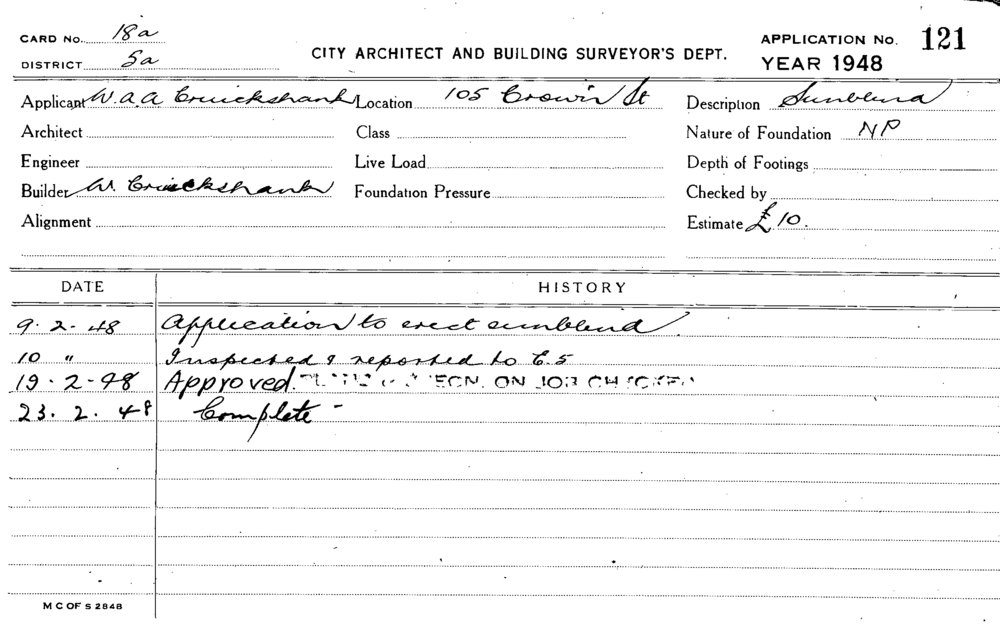 CARD No. 18a
DISTRICT 5a
CITY ARCHITECT AND BUILDING SURVEYOR'S DEPT.
APPLICATION No. 121
YEAR 1948
Applicant W.A.A Cruickshank Location 105 Crown St Description Sunblind
Architect Class Nature of Foundation NP
Engineer Live Load Depth of Footings
Builder W. Cruickshank Foundation Pressure Checked by
Alignment Estimate £10.
DATE HISTORY
9.2.48 Application to erect sunblind.
10 " Inspected & reported to C.S
19.2.48 Approved. ON JOB CHECKED
23.2.48 Complete -
M C OF S 2848